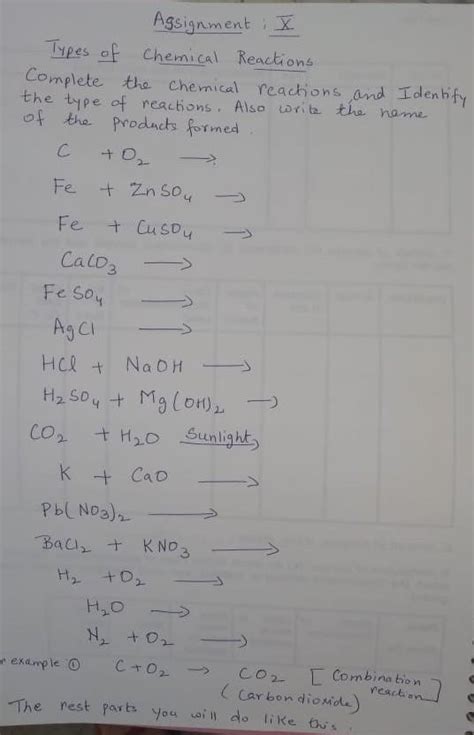 Assignment : X
Types of Chemical Reactions
Complete the chemical reactions and Identify
the type of reactions. Also write the name
of the products formed.
C + O₂ →
Fe + ZnSO₄ →
Fe + CuSO₄ →
CaCO₃ →
FeSO₄ →
AgCl →
HCl + NaOH →
H₂SO₄ + Mg(OH)₂ →
CO₂ + H₂O Sunlight→
K + CaO →
Pb(NO₃)₂ →
BaCl₂ + KNO₃ →
H₂ + O₂ →
H₂O →
N₂ + O₂ →
r example ① C + O₂ → CO₂ [Combination reaction]
(Carbondioxide)
The rest parts you will do like this.